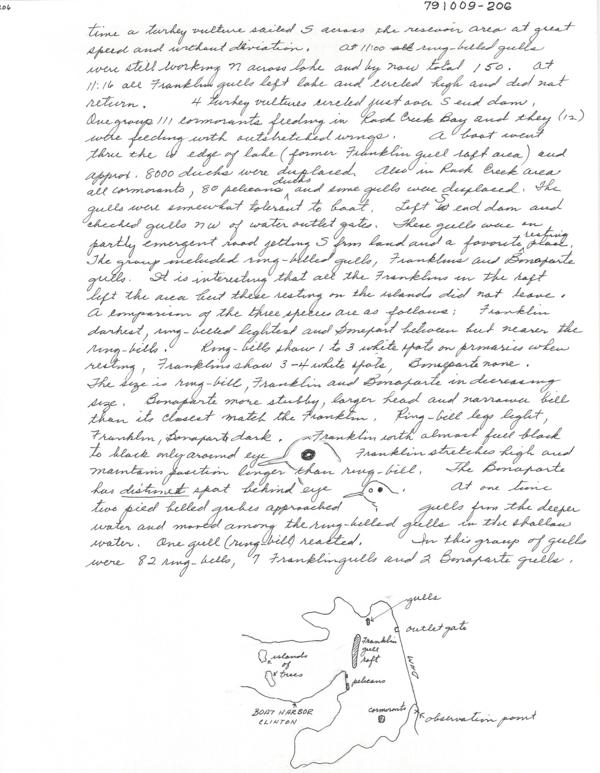 206
791009-206
time a turkey vulture sailed S across the resevoir area at great
speed and without deviation. At 11:00 ring-belled gulls
were still working N across lake and by now total 150. At
11:16 all Franklin gulls left lake and circled high and did not
return. 4 turkey vultures circled just over S end dam.
One group 111 cormorants feeding in Rock Creek Bay and they (12)
were feeding with outstretched wings. A boat went
thru the W edge of lake (former Franklin gull raft area) and
approx. 8000 ducks were displaced. Also in Rock Creek area
all cormorants, 80 pelicans, ducks and some gulls were displaced. The
gulls were somewhat tolerant to boat. Left S end dam and
checked gulls NW of water outlet gates. These gulls were on
partly emergent road jetting S from land and a favorite resting place.
The group included ring-belled gulls, Franklins and Bonaparte
gulls. It is interesting that all the Franklins in the raft
left the area but these resting on the islands did not leave.
A comparison of the three species are as follows: Franklin
darkest, ring-belled lightest and Bonepart between but nearer the
ring-bills. Ring-bills show 1 to 3 white spots on primaries when
resting, Franklins show 3-4 white spots, Bonaparte none.
The size is ring-bill, Franklin and Bonaparte in decreasing
size. Bonaparte more stubby, larger head and narrower bill
than its closest match the Franklin. Ring-bill legs light,
Franklin, Bonaparte dark. Franklin with almost full black
to black only around eye Franklin stretches high and
maintains position longer than ring-bill. The Bonaparte
has distinct spot behind eye. At one time
two pied belled grebes approached gulls from the deeper
water and moved among the ring-belled gulls in the shallow
water. One gull (ring-bill) reacted. In this group of gulls
were 82 ring-bells, 7 Franklin gulls and 2 Bonaparte gulls.
gulls
outlet gate
Franklin
gull
raft
DAM
islands
of
trees
pelicans
BOAT HARBOR
CLINTON
cormorants
observation point